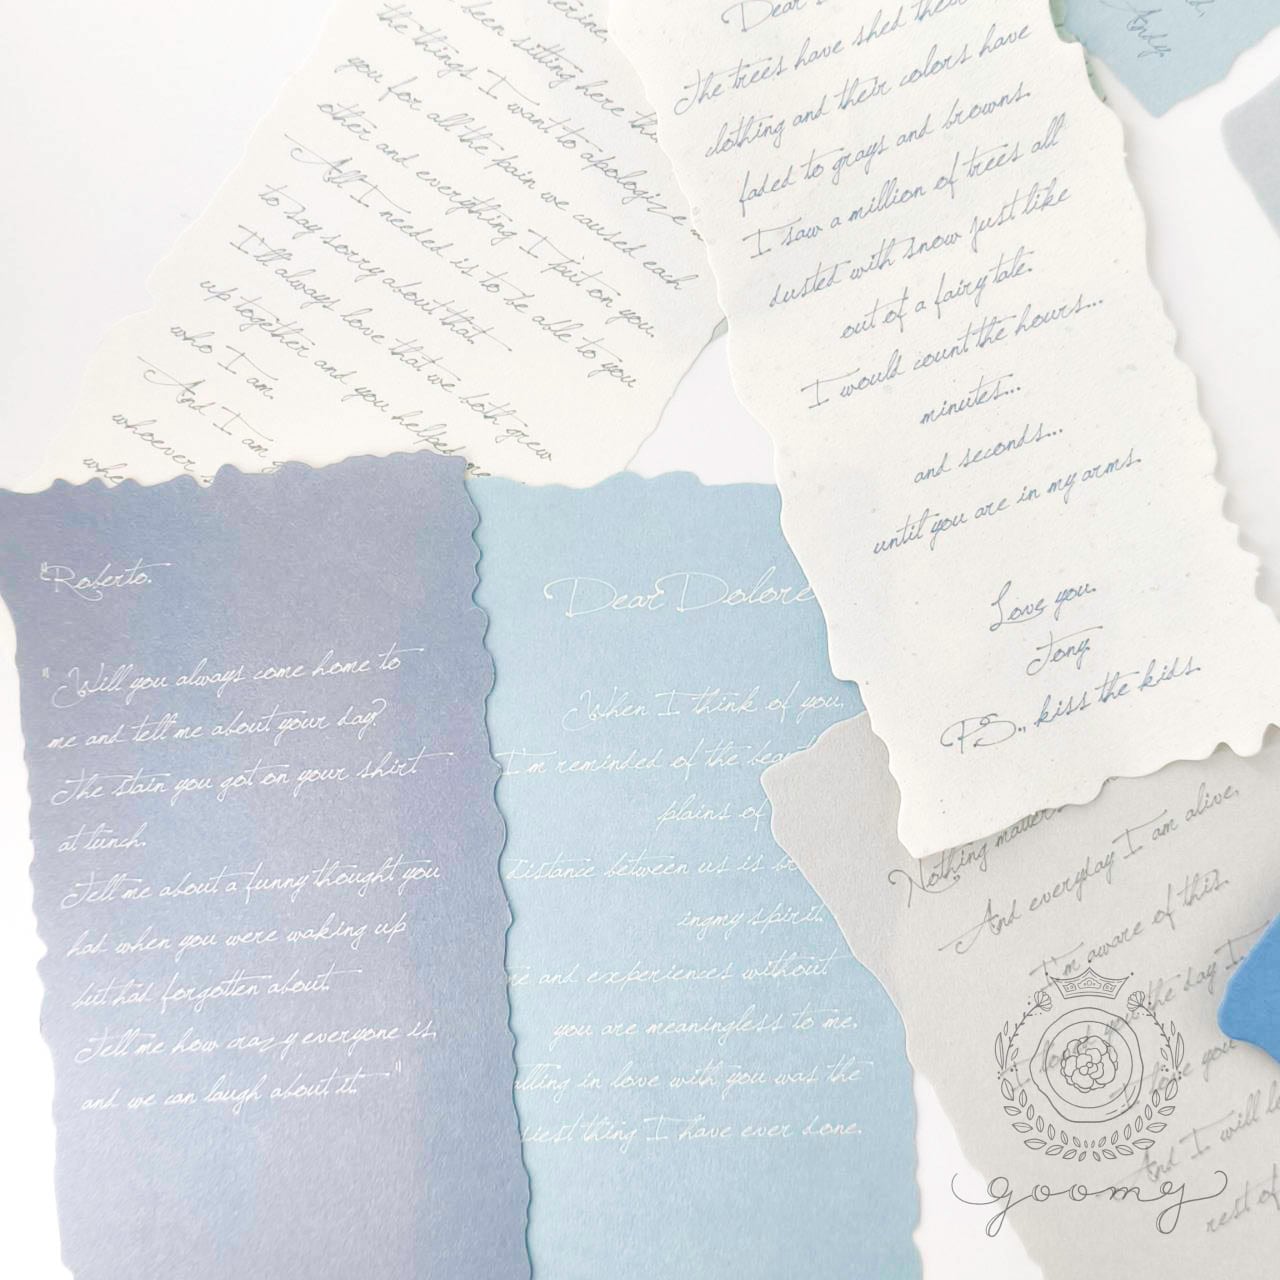 been sitting here
the things I want to apologize
you for all the pain we caused each
other and everything I put on you.
All I needed is to be able to you
to say sorry about that.
I'll always love that we both grew
up together and you helped me
who I am.
And I am
whoever
Dear
The trees have shed their
clothing and their colors have
faded to grays and browns.
I saw a million of trees all
dusted with snow just like
out of a fairy tale.
I would count the hours...
minutes...
and seconds...
until you are in my arms.
Love you.
Tony
P.S., kiss the kids.
Andy
"Roberto.
"Will you always come home to
me and tell me about your day?
The stain you got on your shirt
at lunch.
Tell me about a funny thought you
has when you were waking up
but had forgotten about.
Tell me how crazy everyone is,
and we can laugh about it."
Dear Dolore
When I think of you,
I'm reminded of the
plains of
distance between us is
ingmy spirit.
and experiences without
you are meaningless to me.
in love with you was the
thing I have ever done.
Nothing matters
And everyday I am alive,
I'm aware of this.
I loved you the day I
I love you
And I will
rest of
goomy